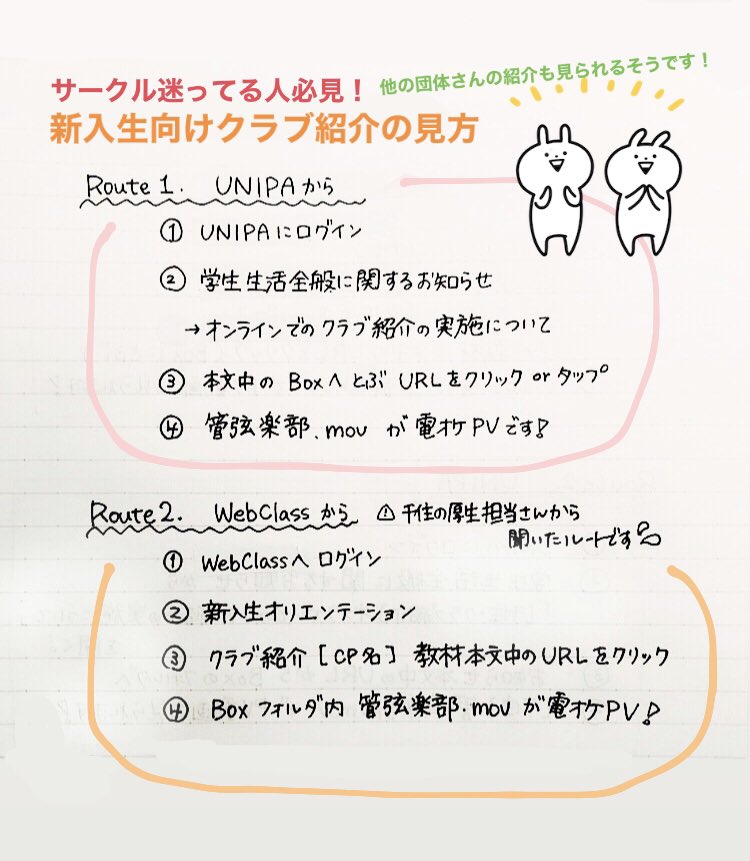 サークル迷ってる人必見！
他の団体さんの紹介も見られるそうです！
新入生向けクラブ紹介の見方
Route 1. UNIPAから
① UNIPAにログイン
② 学生生活全般に関するお知らせ
→オンラインでのクラブ紹介の実施について
③ 本文中の Boxへ とぶ URLをクリック or タップ
④ 管弦楽部.mov が 電オケPVです!
Route 2. WebClassから ⚠千住の厚生担当さんから
聞いたルートです
① WebClassへ ログイン
② 新入生オリエンテーション
③ クラブ紹介 [CP名] 教材本文中のURLをクリック
④ Box フォルダ内 管弦楽部.mov が電オケPV!